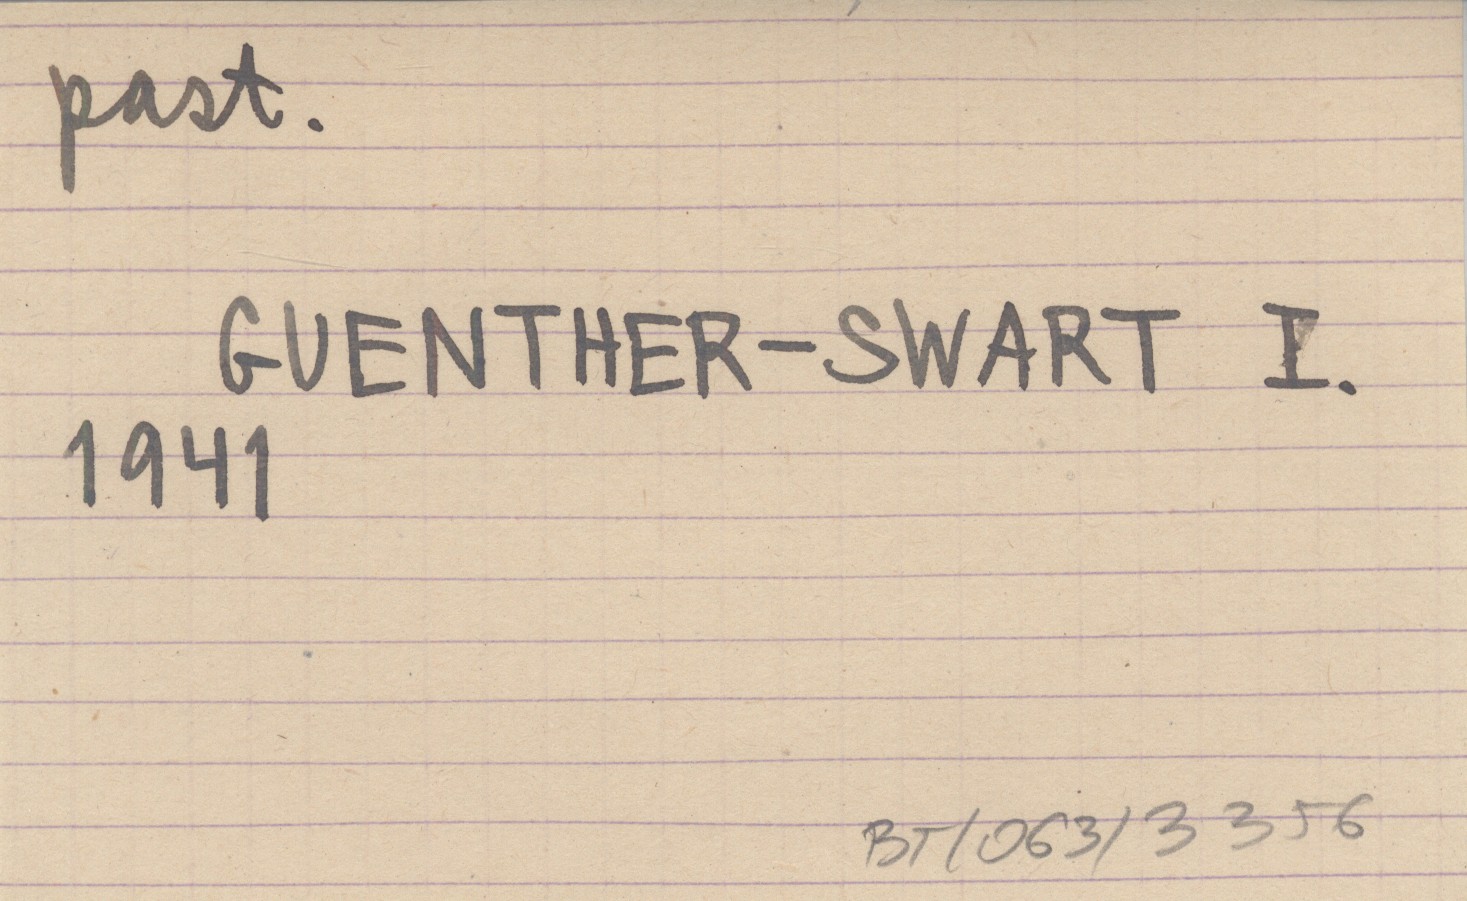 past.
GUENTHER-SWART I.
1941
BT/063/3356